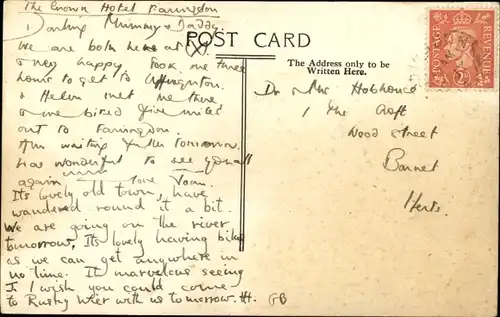 The Crown Hotel Faringdon
Darling Mummy & Daddy
We are both here at (X)
& very happy. Took me three
hours to get to Uffington
& Helen met me there
& we biked five miles
out to Faringdon.
Am writing fuller tomorrow.
Was wonderful to see you all
again love
Its lovely old town, have
wandered round it a bit.
We are going on the river
tomorrow. Its lovely having bikes
as we can get anywhere in
no time. It marvelous seeing
J. I wish you could come
to Rushy Weir with us tomorrow. H.
GB
POST CARD
The Address only to be
Written Here.
Dr & Mrs Hobhouse
1 The Croft
Wood Street
Barnet
Herts.
POSTAGE
REVENUE
2D